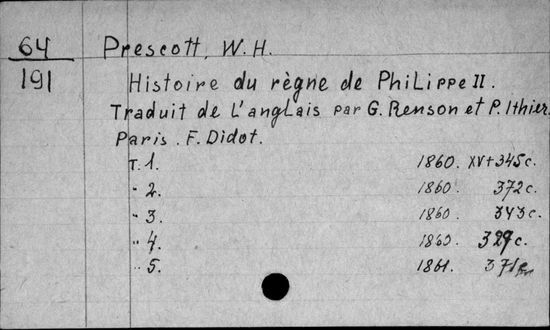 64
191
Prescott, W. H.
Histoire du règne de Philippe II.
Traduit de L'anglais par G. Renson et P. Ithier.
Paris. F. Didot.
T. 1. 1860. XV+345c.
" 2. 1860. 372c.
" 3. 1860. 343c.
" 4. 1860. 329c.
" 5. 1861. 371